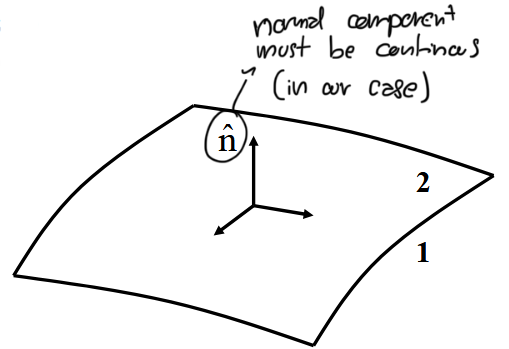 normal component
must be continous
(in our case)
n̂
2
1